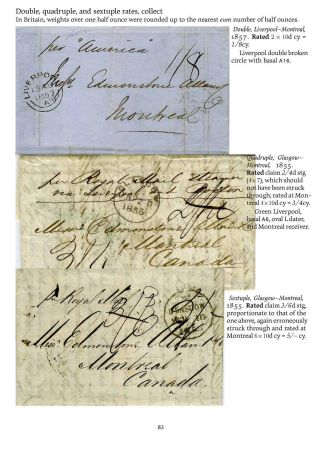 Double, quadruple, and sextuple rates, collect
In Britain, weights over one half ounce were rounded up to the nearest even number of half ounces.
Double, Liverpool–Montreal,
1857. Rated 2 × 10d cy =
1/8cy.
Liverpool double broken
circle with basal A16.
per "America"
1/8
LIVERPOOL
1857
Messrs Edmonstone Allan & Co
Montreal
Quadruple, Glasgow–
Montreal, 1855.
Rated claim 2/4d stg
(4×7), which should
not have been struck
through; rated at Mon-
treal 4×10d cy = 3/4cy.
Green Liverpool,
basal A6, oval L dater,
and Montreal receiver.
per Royal Mail Steamer
via Liverpool
1855
Messrs Edmonstone Allan & Co
Montreal
Canada
Sextuple, Glasgow–Montreal,
1855. Rated claim 3/6d stg,
proportionate to that of the
one above, again erroneously
struck through and rated at
Montreal 6×10d cy = 5/– cy.
per Royal Mail
GLASGOW
Messrs Edmonstone Allan & Co
Montreal
Canada
83